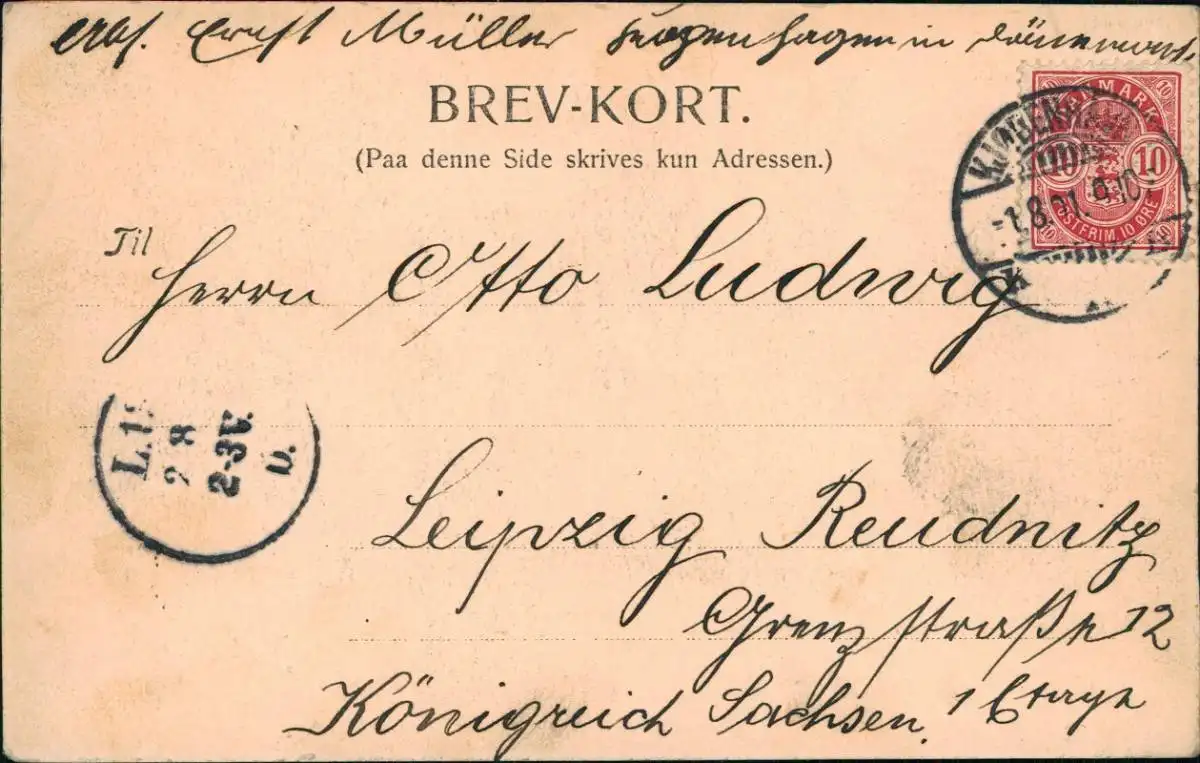 Abs. Ernst Müller Kopenhagen in Dänemark.
BREV-KORT.
(Paa denne Side skrives kun Adressen.)
DANMARK
10 10
POSTFRIM. 10 ØRE
KJØBENH
1.8.01. 9-10
K
Til
Herrn Otto Ludwig
L.1
2 8
2-3V.
Leipzig Reudnitz
Grenzstraße 12
Königreich Sachsen. 1 Etage